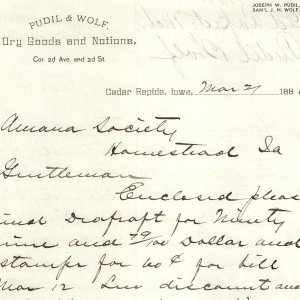 PUDIL & WOLF,
JOSEPH W. PUDIL
SAM'L J. H. WOLF,
Dry Goods and Notions,
Cor. 2d Ave. and 2d St.
Cedar Rapids, Iowa, Mar 21 188
Amana Society
Homestead Ia
Gentleman
Enclosed pleas
find Drafraft for Ninety
nine and 79/100 Dollar and
stamps for for bill
Mar 12 discount and